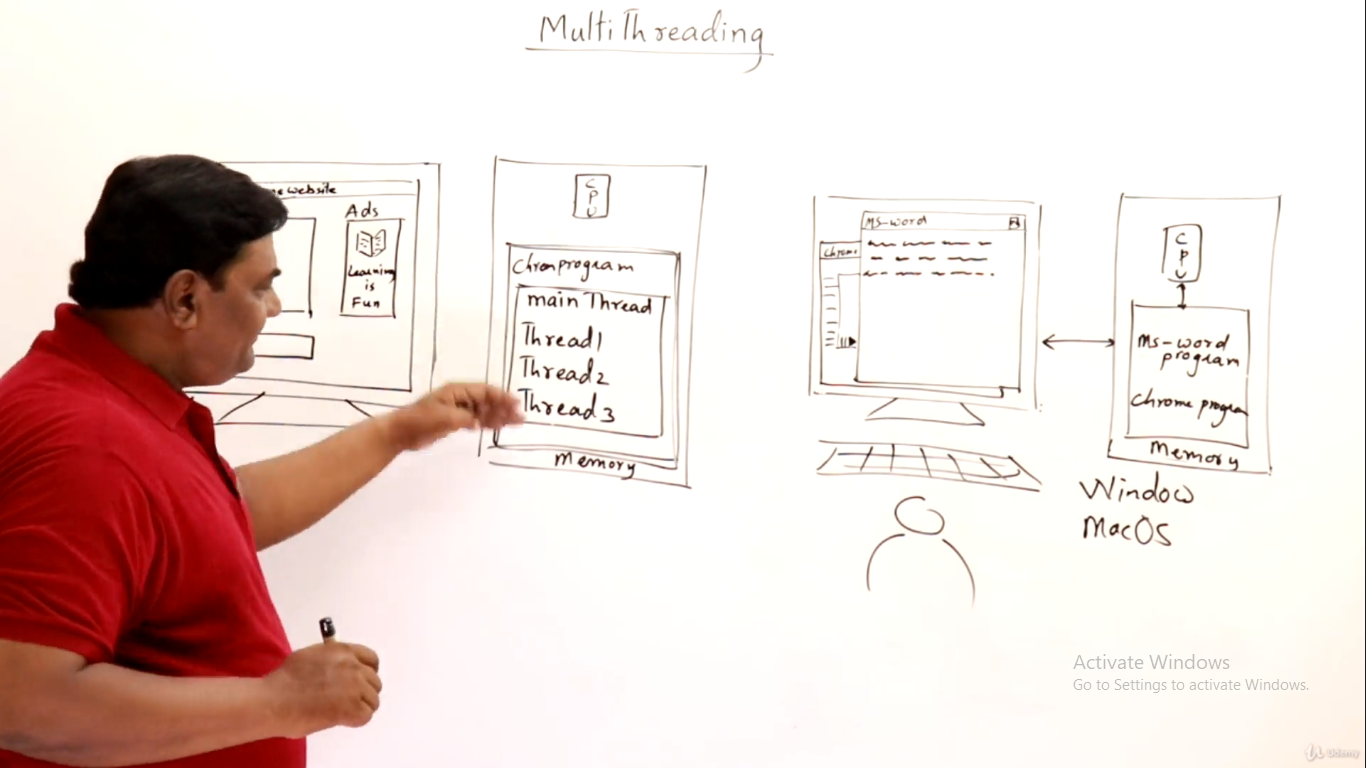 MultiThreading
website
Ads
Learning
is
Fun
CPU
Chromprogram
main Thread
Thread1
Thread2
Thread3
Memory
MS-word
Chrome
CPU
Ms-word
program
Chrome program
Memory
Window
MacOS
Activate Windows
Go to Settings to activate Windows.
Udemy